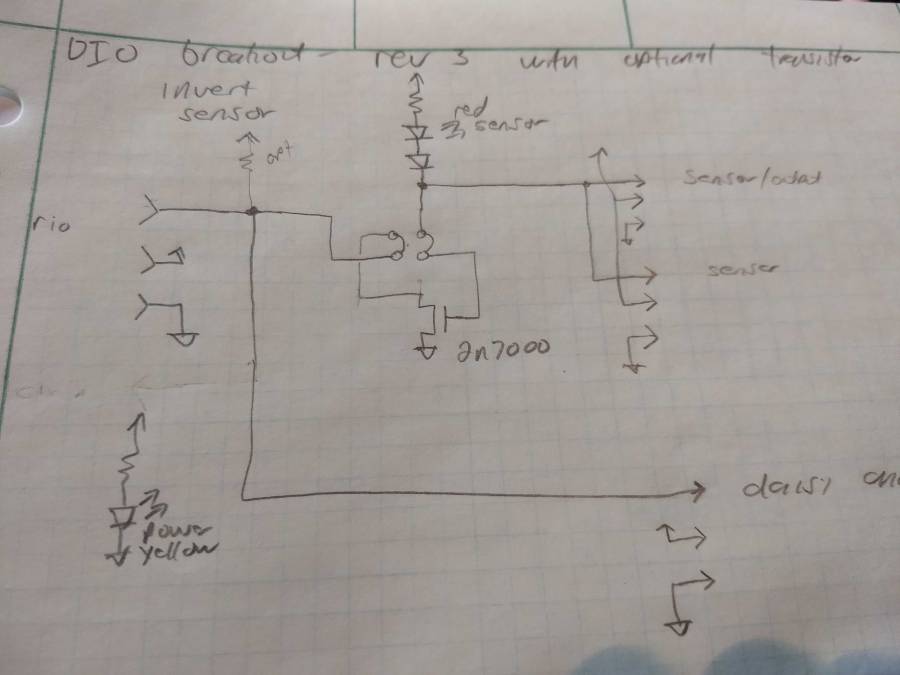 DIO breakout - rev 3 with optional transistor
invert
sensor
opt
red
sensor
rio
sensor/
sensor
2n7000
power
yellow
daisy